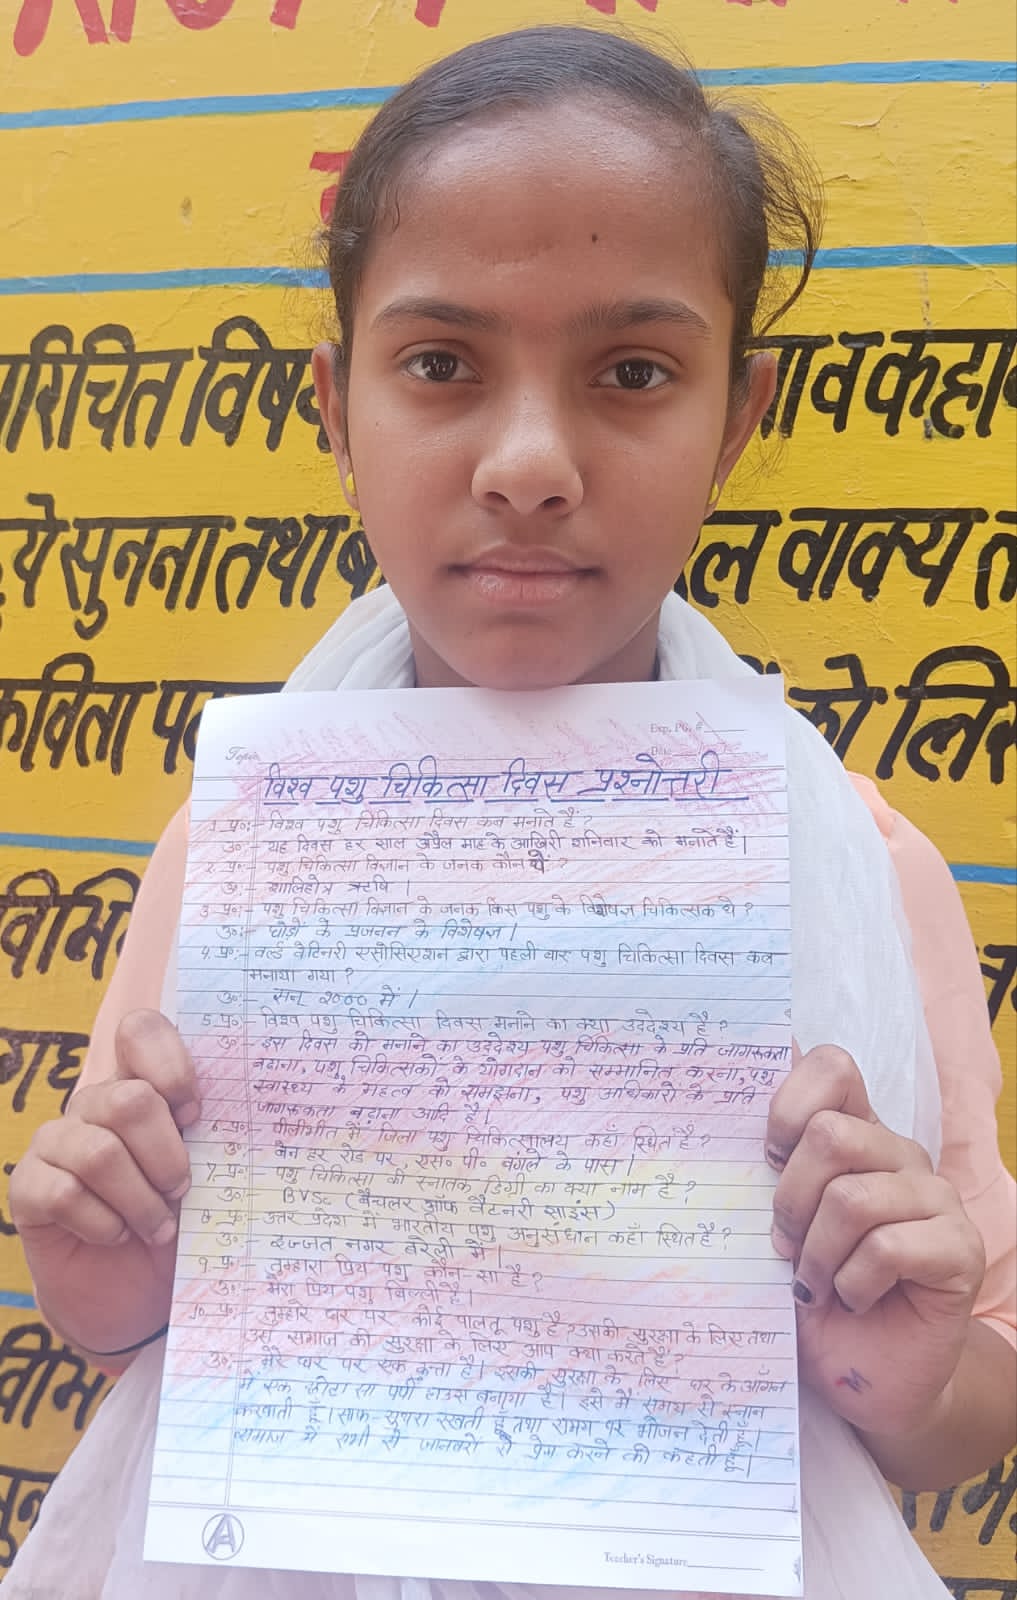 परिचित विषय
व कहा
ये सुनना तथा
ल वाक्य
कविता
को लिख
Exp. Pg. #
Date
Topic
विश्व पशु चिकित्सा दिवस प्रश्नोत्तरी
1 प्र०:- विश्व पशु चिकित्सा दिवस कब मनाते हैं?
उ०:- यह दिवस हर साल अप्रैल माह के आखिरी शनिवार को मनाते हैं।
2. प्र०:- पशु चिकित्सा विज्ञान के जनक कौन थे?
उ०:- शालिहोत्र ऋषि।
3 प्र०:- पशु चिकित्सा विज्ञान के जनक किस पशु के विशेषज्ञ चिकित्सक थे?
उ०:- घोड़ों के प्रजनन के विशेषज्ञ।
4 प्र०:- वर्ल्ड वेटिनरी एसोसिएशन द्वारा पहली बार पशु चिकित्सा दिवस कब
मनाया गया?
उ०:- सन् २००० में।
5. प्र०:- विश्व पशु चिकित्सा दिवस मनाने का क्या उद्देश्य है?
उ०:- इस दिवस को मनाने का उद्देश्य पशु चिकित्सा के प्रति जागरूकता
बढ़ाना, पशु चिकित्सकों के योगदान को सम्मानित करना, पशु
स्वास्थ्य के महत्व को समझना, पशु अधिकारों के प्रति
जागरूकता बढ़ाना आदि है।
6 प्र०:- पीलीभीत में जिला पशु चिकित्सालय कहाँ स्थित है?
उ०:- नैन हर रोड पर एस० पी० बंगले के पास।
7 प्र०:- पशु चिकित्सा की स्नातक डिग्री का क्या नाम है?
उ०:- BVSc (बैचलर ऑफ वैटनरी साइंस)
8 प्र०:- उत्तर प्रदेश में भारतीय पशु अनुसंधान कहाँ स्थित है?
उ०:- इज्जत नगर बरेली में।
9. प्र०:- तुम्हारा प्रिय पशु कौन-सा है?
उ०:- मेरा प्रिय पशु बिल्ली है।
10. प्र०:- तुम्हारे घर पर कोई पालतू पशु है? उसकी सुरक्षा के लिए तथा
उसे समाज की सुरक्षा के लिए आप क्या करते हैं?
उ०:- मेरे घर पर एक कुत्ता है। इसकी सुरक्षा के लिए घर के आँगन
में एक छोटा सा पपी हाउस बनाया है। इसे मैं समय से स्नान
करवाती हूँ। साफ-सुथरा रखती हूँ तथा समय पर भोजन देती हूँ।
समाज में सभी से जानवरों से प्रेम करने की कहती हूँ।
A
Teacher's Signature